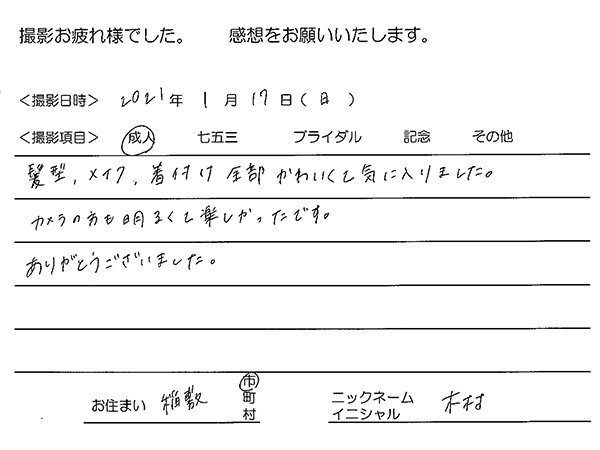 撮影お疲れ様でした。 感想をお願いいたします。
＜撮影日時＞ 2021年 1月 17日（日）
＜撮影項目＞ 成人 七五三 ブライダル 記念 その他
髪型、メイク、着付け 全部 かわいくて気に入りました。
カメラの方も明るくて楽しかったです。
ありがとうございました。
お住まい 稲敷 市 町 村
ニックネーム イニシャル 木村